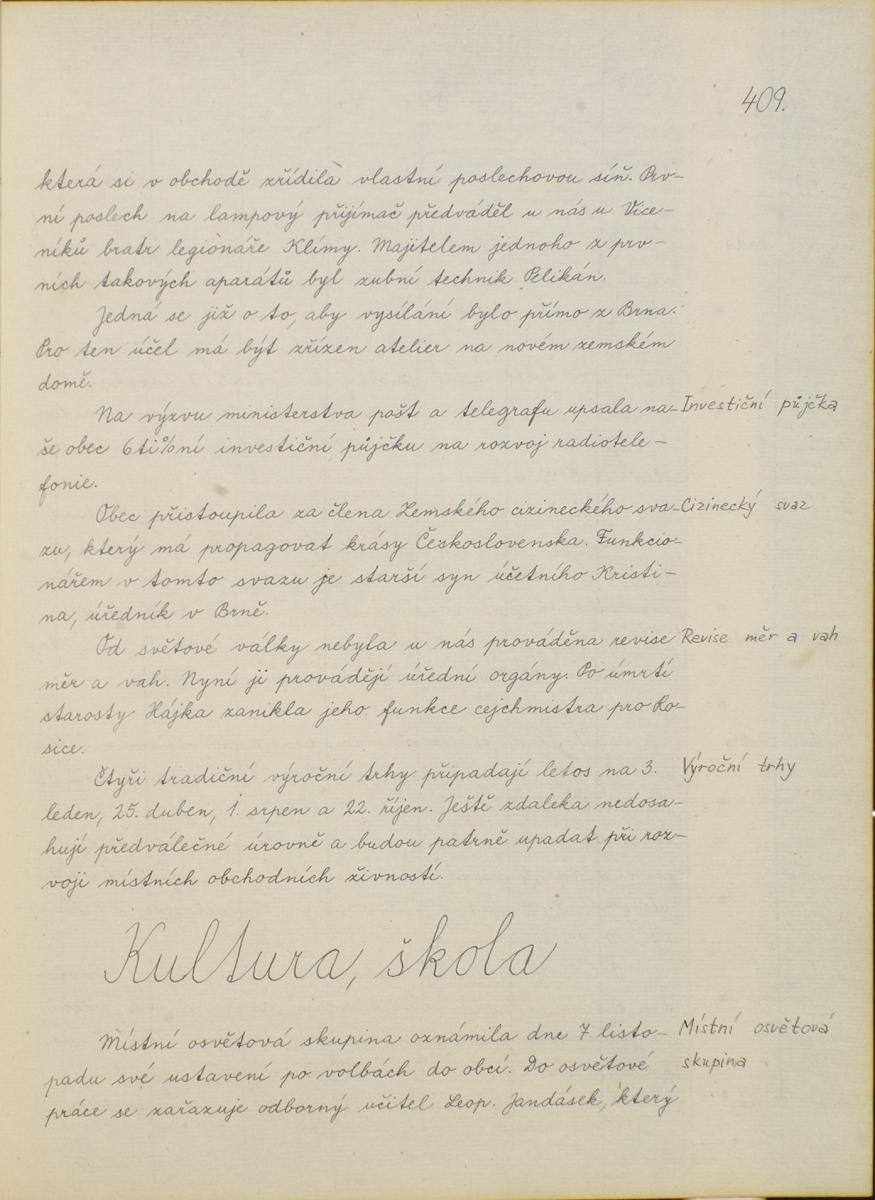 409.
která si v obchodě zřídila vlastní poslechovou síň. Prv-
ní poslech na lampový přijímač předváděl u nás u Více-
níků bratr legionáře Klímy. Majitelem jednoho z prv-
ních takových aparátů byl zubní technik Pelikán.
Jedná se již o to, aby vysílání bylo přímo z Brna.
Pro ten účel má být zřízen atelier na novém zemském
domě.
Na výzvu ministerstva pošt a telegrafu upsala na- Investiční půjčka
še obec 6ti%ní investiční půjčku na rozvoj radiotele-
fonie.
Obec přistoupila za člena Zemského cizineckého sva- Cizinecký svaz
zu, který má propagovat krásy Československa. Funkcio-
nářem v tomto svazu je starší syn účetního Kristi-
na, úředník v Brně.
Od světové války nebyla u nás prováděna revise Revise měr a vah
měr a vah. Nyní ji provádějí úřední orgány. Po úmrtí
starosty Hájka zanikla jeho funkce cejchmistra pro Ro-
sice.
Čtyři tradiční výroční trhy připadají letos na 3. Výroční trhy
leden, 25. duben, 1. srpen a 22. říjen. Ještě zdaleka nedosa-
hují předválečné úrovně a budou patrně upadat při roz-
voji místních obchodních živností.
Kultura, škola
Místní osvětová skupina oznámila dne 7 listo- Místní osvětová
padu své ustavení po volbách do obcí. Do osvětové skupina
práce se zařazuje odborný učitel Leop. Jandásek, který